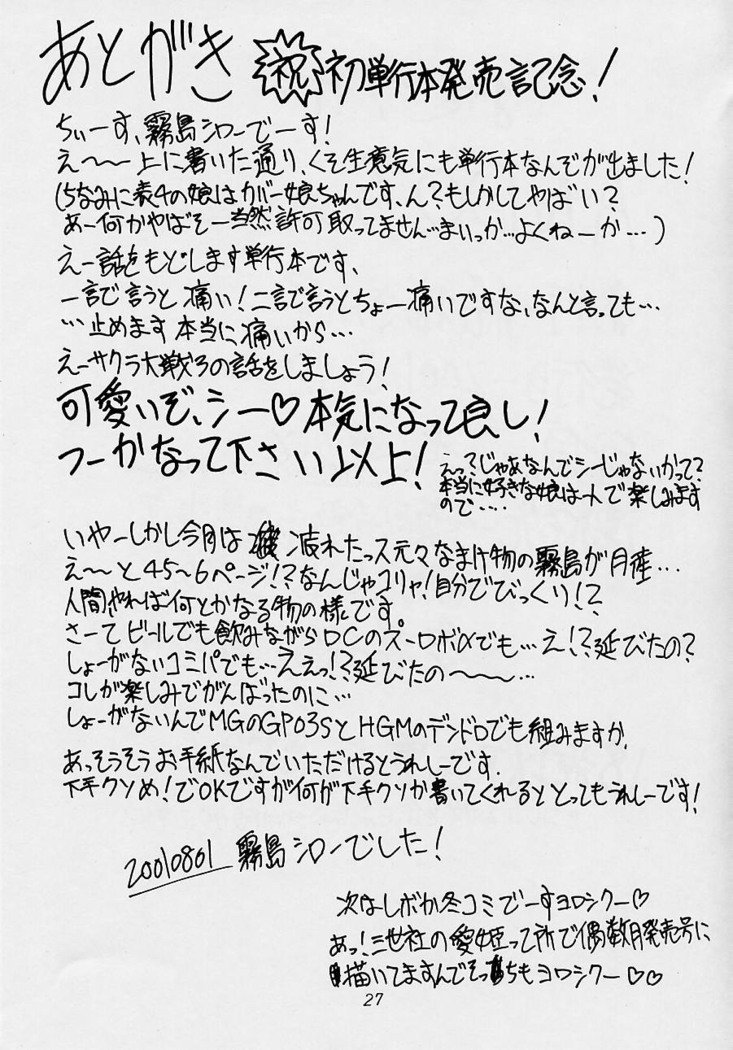 あとがき 祝 初単行本発売記念!
ちぃーす、霧島シローでーす!
え〜〜上に書いた通り、くそ生意気にも単行本なんぞが出ました!
(ちなみに表4の娘はカバー娘ちゃんです、ん?もしかしてやばい?
あー何かやばそー当然許可取ってません…まいっか…よくねーか…)
えー話をもどします単行本です、
一言で言うと痛い!二言で言うとちょー痛いですな、なんと言っても…
…止めます本当に痛いから…
えーサクラ大戦3の話をしましょう!
可愛いぞ、シー♡本気になって良し!
つーかなって下さい以上!
えっ?じゃあなんでシーじゃないかって?
本当に好きな娘は一人で楽しみます
ので‥‥
いやーしかし今月は 疲れたっス元々なまけ物の霧島が月産…
え〜と45〜6ページ!?なんじゃコリャ!自分でびっくり!?
人間やれば何とかなる物の様です。
さーてビールでも飲みながらDCのスーロボαでも…え!?延びたの?
しょーがないコミパでも…ええっ!?延びたの〜〜〜…
コレが楽しみでがんばったのに…
しょーがないんでMGのGP03SとHGMのデンドロでも組みますか、
あっそうそうお手紙なんていただけるとうれしーです.
下手クソめ!でOKですが何が下手クソか書いてくれるととってもうれしーです!
20010801 霧島シローでした!
次はレボか冬コミでーすヨロシクー♡
あっ!三世社の愛姫って所で偶数月発売号に
描いてますんでそっちもヨロシクー♡♡
27